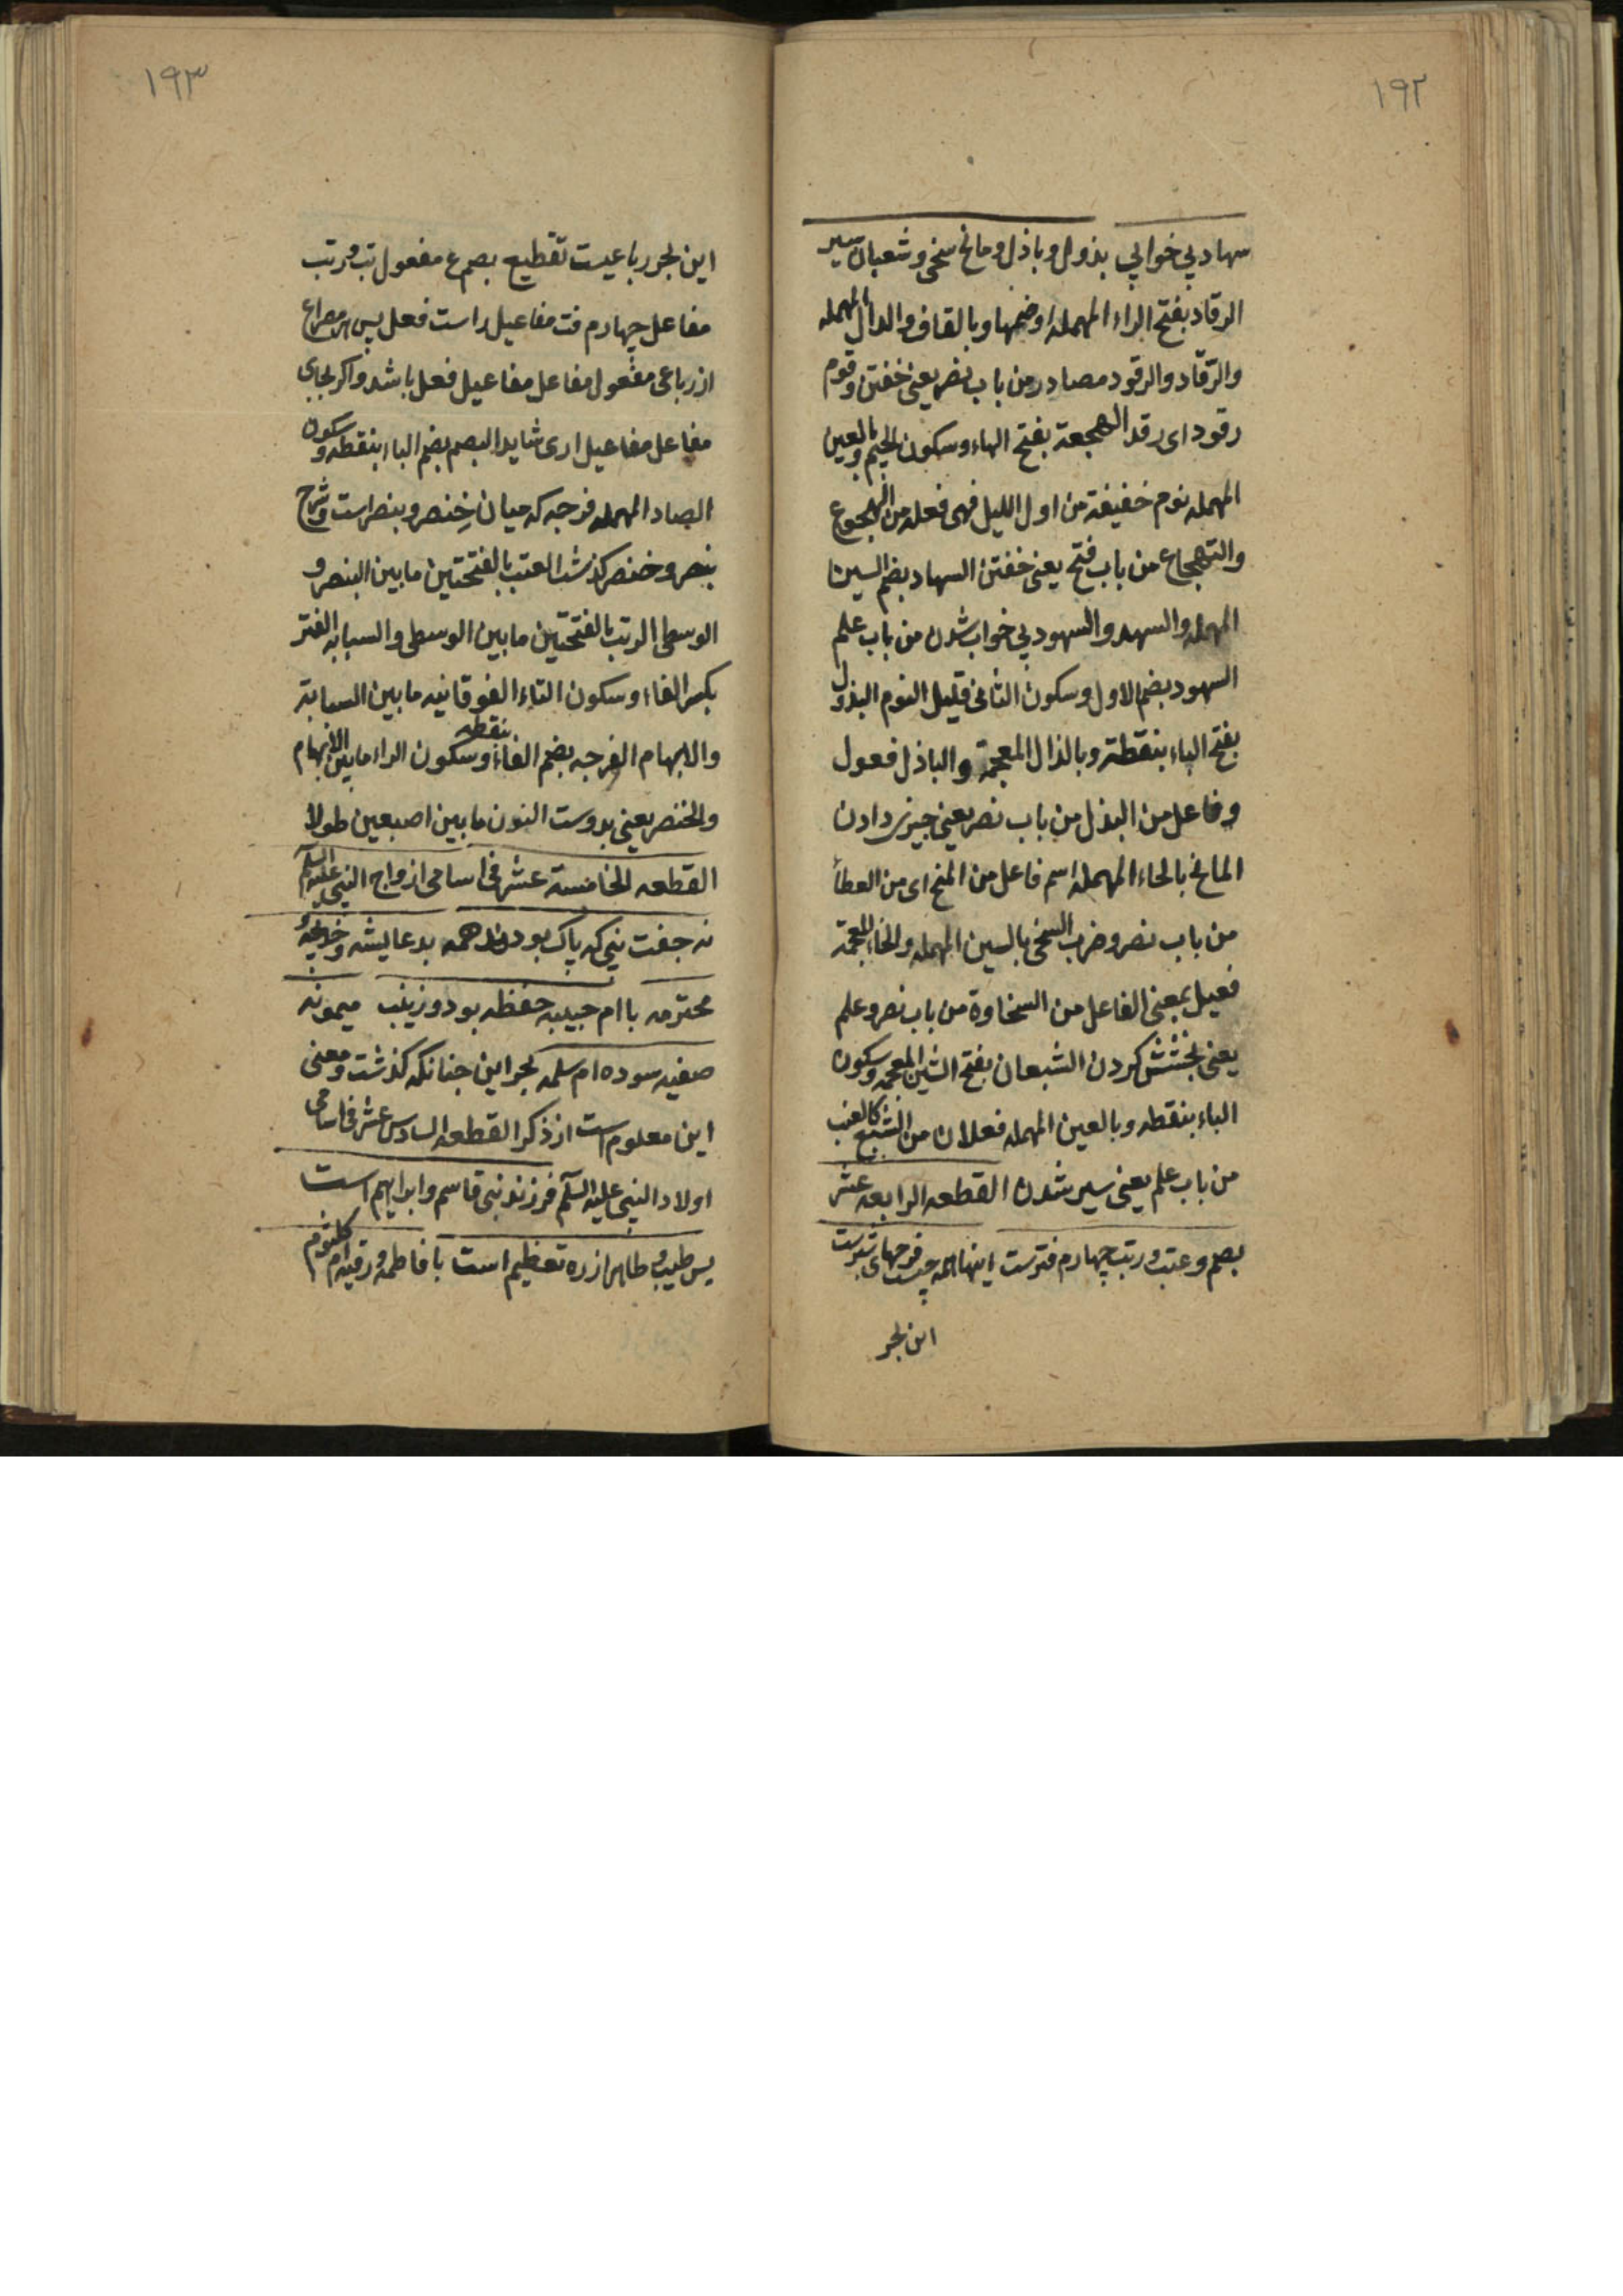 ١٩٢
سهاد بی خوابی بذول و باذل و مانح سخی و شعبان سیر
الرقاد بفتح الراء المهملة اوضمها و بالقاف و الدال المهمله
والرّقاد والرقود مصادر من باب نصر یعنی خفتن وقوم
رقود ای رقد الهجعة بفتح الهاء وسکون الجیم وبالعین
المهمله نوم خفیفة من اول اللیل فهی فعلة من الهجوع
والتهجاع من باب فتح یعنی خفتن السهاد بضم السین
المهمله والسهد والسهود بی خواب شدن من باب علم
السهود بضم الاول وسکون الثانی قلیل النوم البذول
بفتح الباء بنقطة وبالذال المعجمة والباذل فعول
وفاعل من البذل من باب نصر یعنی چیزی دادن
المانح بالحاء المهمله اسم فاعل من المنح ای من العطأ
من باب نصر وضرب السخی بالسین المهمله والخاء المعجمة
فعیل بمعنی الفاعل من السخاوة من باب نصر وعلم
یعنی بخشش کردن الشبعان بفتح الشین المعجمه وسکون
الباء بنقطه وبالعین المهمله فعلان من الشبع کالعنب
من باب علم یعنی سیر شدن القطعه الرابعه عشر
بصم و عتب و رتب چهارم فترست اینها همه چیست فرجهای شبرست
این بحر
١٩٣
این بحر رباعیست تقطیع بصم ع مفعول تب و رتب
مفاعل چهارم فت مفاعیل راست فعل پس هر مصراع
از رباعی مفعول مفاعل مفاعیل فعل باشد و اکر بجای
مفاعل مفاعیل اری شاید البصم بضم الباء بنقطه وسکون
الصاد المهمله فرجه که میان خِنصر و بنصر است وشرح
بنصر و خنصر کذشت العتب بالفتحتین ما بین البنصر و
الوسطی الرتب بالفتحتین ما بین الوسطی والسبابه الفتر
بکسر الفاء وسکون التاء الفوقانیه ما بین السبابة
والابهام الفرجه بضم الفاء بنقطه وسکون الراء ما بین الابهام
والخنصر یعنی بدوست النون ما بین اصبعین طولا
القطعه الخامسة عشر فی اسامی ازواج النبی علیه السلم
نه جفت نبی که پاک بودند همه بد عایشه و خدیجهٔ
محترمه با ام حبیبه حفظه بود و زینب میمونه
صفیه سوده ام سلمه بحر این چنانکه کذشت ومعنی
این معلوم است از ذکر القطعه السادس عشر فی اسامی
اولاد النبی علیه السلم فرزند نبی قاسم و ابراهیم است
پس طیب و طاهر از ره تعظیم است با فاطمه و رقیه ام کلثوم